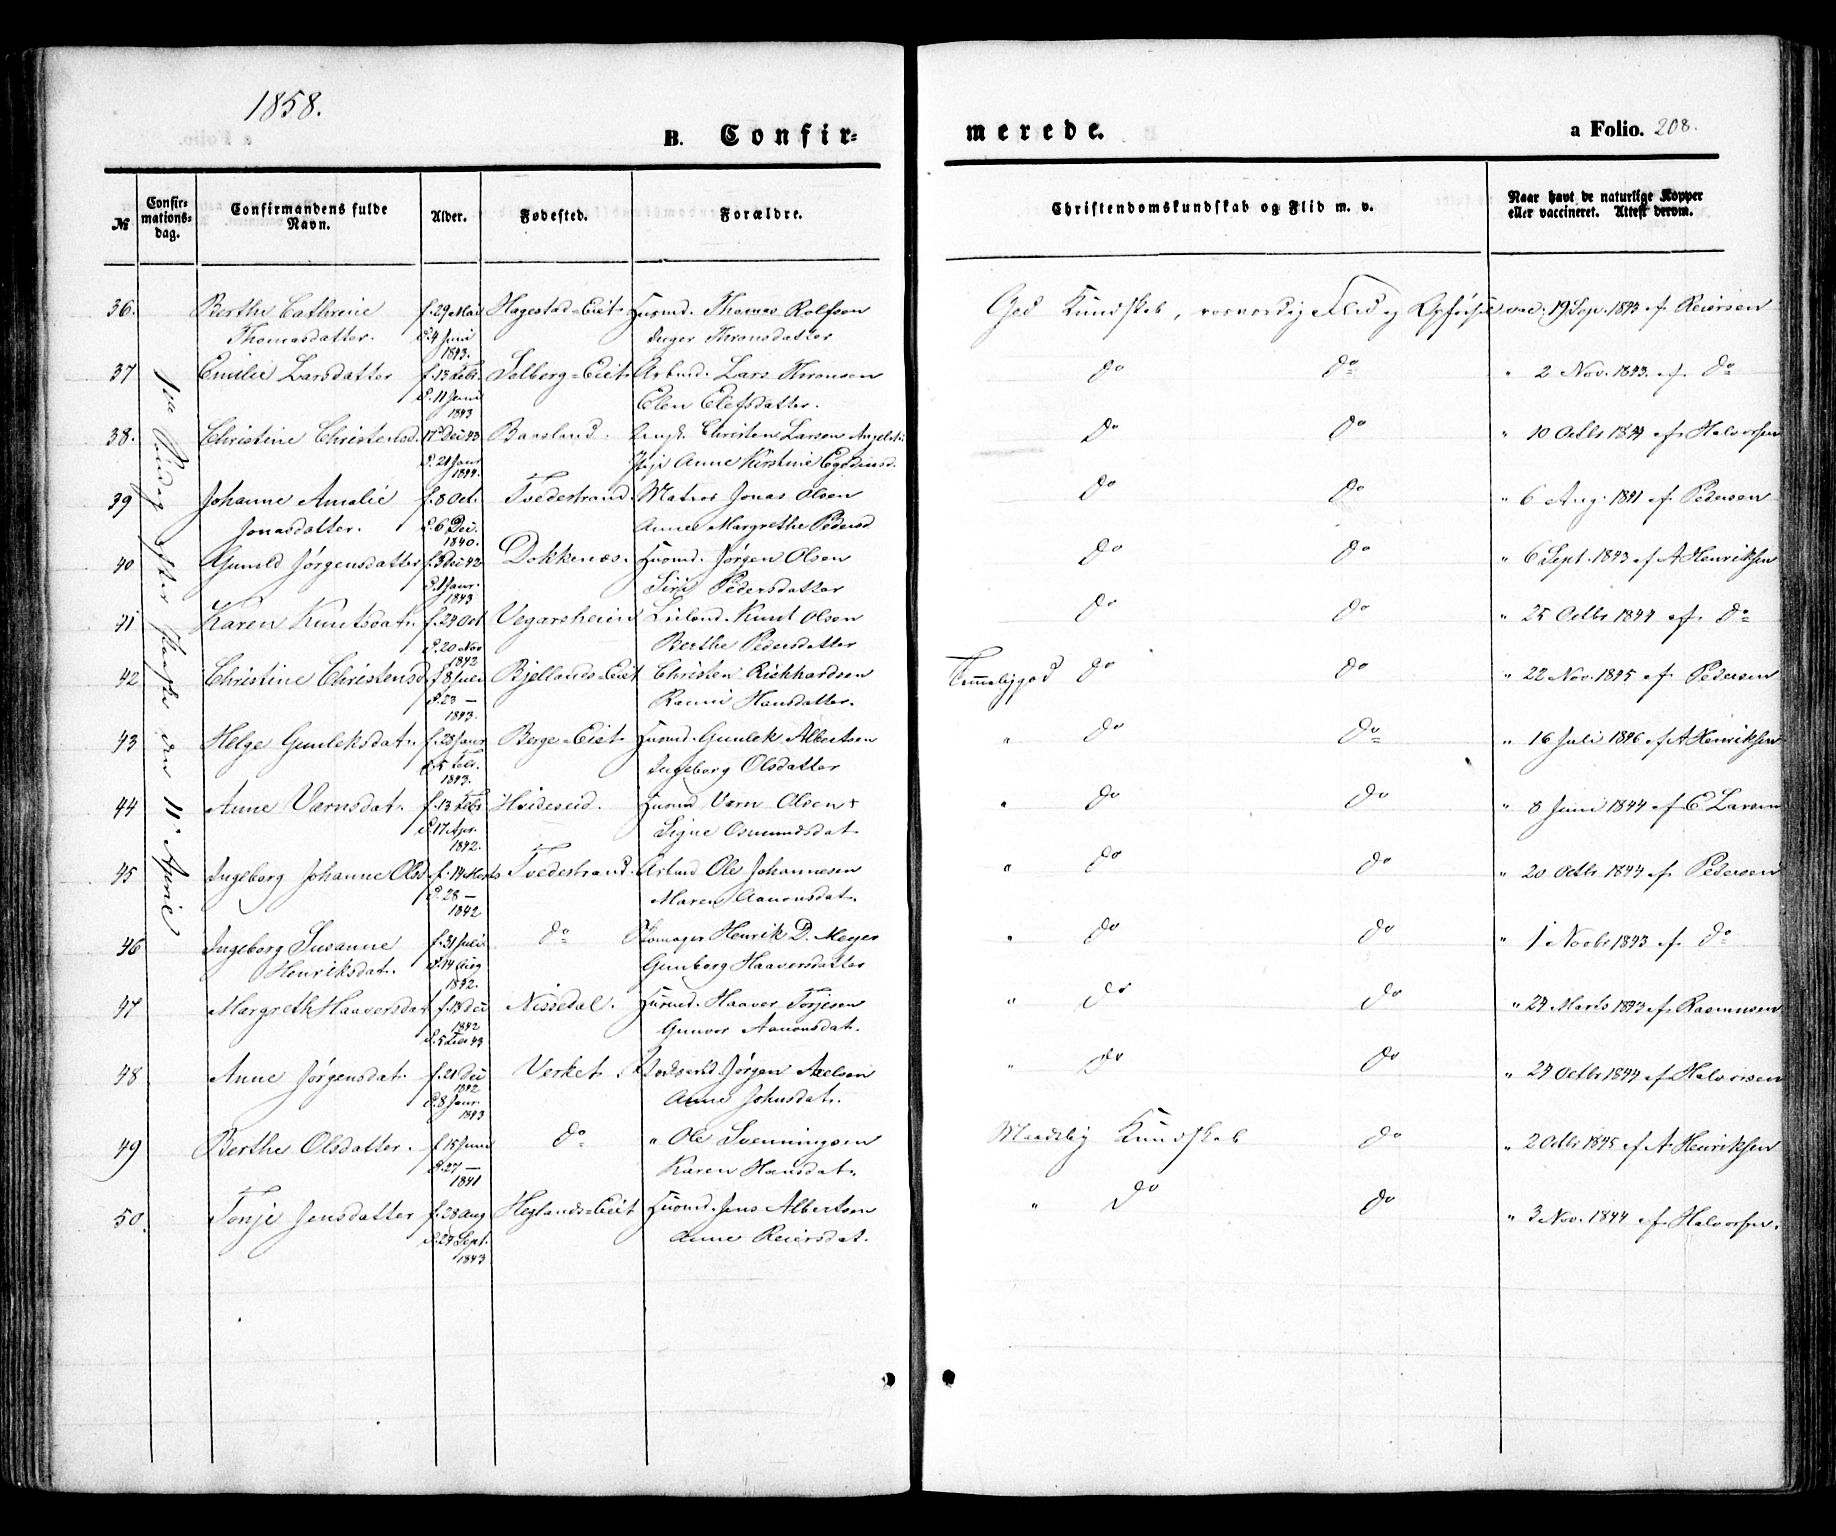 1858.
B. Confir-
merede.
a Folio. 208.
No
Confir-
mations-
dag.
Confirmandens fulde
Navn.
Alder.
Fødested.
Forældre.
Christendomskundskab og Flid m. v.
Naar havt de naturlige Kopper
eller vaccineret. Attest derom.
1ste Søndag efter Paaske den 11te April
36. Berthe Cathrine f. 29 Mai Hagestad-Eiet Husmd. Thomas Rolfsen God Kundskab, rosværdig Flid og Opførsel vac. 19 Sep. 1843 af Reiersen
Thomasdatter. d. 4 Juni Inger Thronsdatter
1843.
37 Emilie Larsdatter f. 13 Feb. Solberg-Eiet Arbmd. Lars Thronsen do do " 2 Nov. 1843. af do
d. 11 Juni Elen Elefsdatter.
1843
38. Christine Christensd. 17 Dec 43 Baasland. Ungk. Christen Larsen do do " 10 Octbr 1844 af Halvorsen
d. 21 Janr Pige Anne Kirstine
1844.
39 Johanne Amalie f. 8 Oct. Tvedestrand Matros Jonas Olsen do do " 6 Aug. 1841 af Pedersen
Jonasdatter. d. 6 Dec. Anne Margrethe Pedersd
1840.
40 Gunild Jørgensdatter f. 3 Dec 42 Dokkenæs. Husmd. Jørgen Olsen do do " 6 Sept. 1843 af A Henriksen
d. 1 Janr. Siri Pedersdatter
1843
41 Karen Knutsdat. f. 24 Oct Vegarsheien Leilend. Knut Olsen do do " 25 Octbr 1844 af do
d. 20 Nov Berthe Pedersdatter
1842
42 Christine Christensd f. 8 Juni Bjellands-Eiet Christen Rickhardsen Temmelig god do do " 22 Nov. 1845 af Pedersen
d. 23 — Hansdatter.
1843.
43 Helge Gunleksdat. f. 28 Janr Berge-Eiet Husmd. Gunlek Albertsen " do do " 16 Juli 1846 af A Henriksen
d. 5 Febr. Ingeborg Olsdatter
1843.
44 Anne Værnsdat. f. 13 Feb Hvideseid. Husmd Værn Olsen + " do do " 8 Juni 1844 af C Larsen
d. 17 Apr. Signe Osmundsdat
1842.
45 Ingeborg Johanne Olsd f. 14 Marts Tvedestrand. Arbmd Ole Johannesen " do do " 20 Octbr 1844 af Pedersen
d. 28 — Maren Aanonsdat.
1842
46 Ingeborg Susanne f. 31 Juli do Skomager Henrik D. Meyer " do do " 1 Novbr 1843 af do
Henriksdat. d. 14 Aug Gunborg Haaversdatter
1842.
47 Margreth Haaversdat f. 13 Dec Nissedal. Husmd. Haaver Torjesen " do do " 24 Marts 1843 af Rasmusen
1842 Gunvor Aanonsdat.
d. 5 Feb 43
48 Anne Jørgensdat. f. 21 Dec Verket. Jørgen Axelsen " do do " 24 Octbr 1844 af Halvorsen
1842 Anne Johnsdat.
d. 8 Janr.
1843
49 Berthe Olsdatter. f. 15 Juni do " Ole Svenningsen Maadelig Kundskab do " 2 Octbr 1845 af A Henriksen
d. 27 — Karen Hansdat.
1841
50. Tonje Jensdatter f. 28 Aug Heglands-Eiet Husmd. Jens Albertsen " do do " 3 Nov. 1844 af Halvorsen.
d. 24 Sept. Anne Reiersdat.
1843